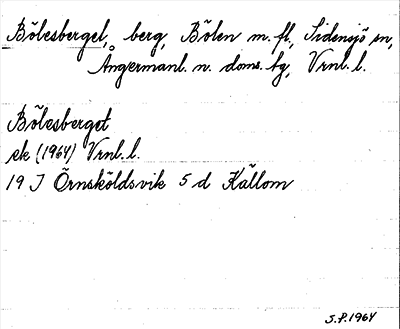 Bölesberget, berg, Bölen m. fl, Sidensjö sn,
Ångermanl. n. doms. tg, Vrnl. l.
Bölesberget
ek (1964) Vrnl. l.
19 J Örnsköldsvik 5 d Källom
S.P. 1964